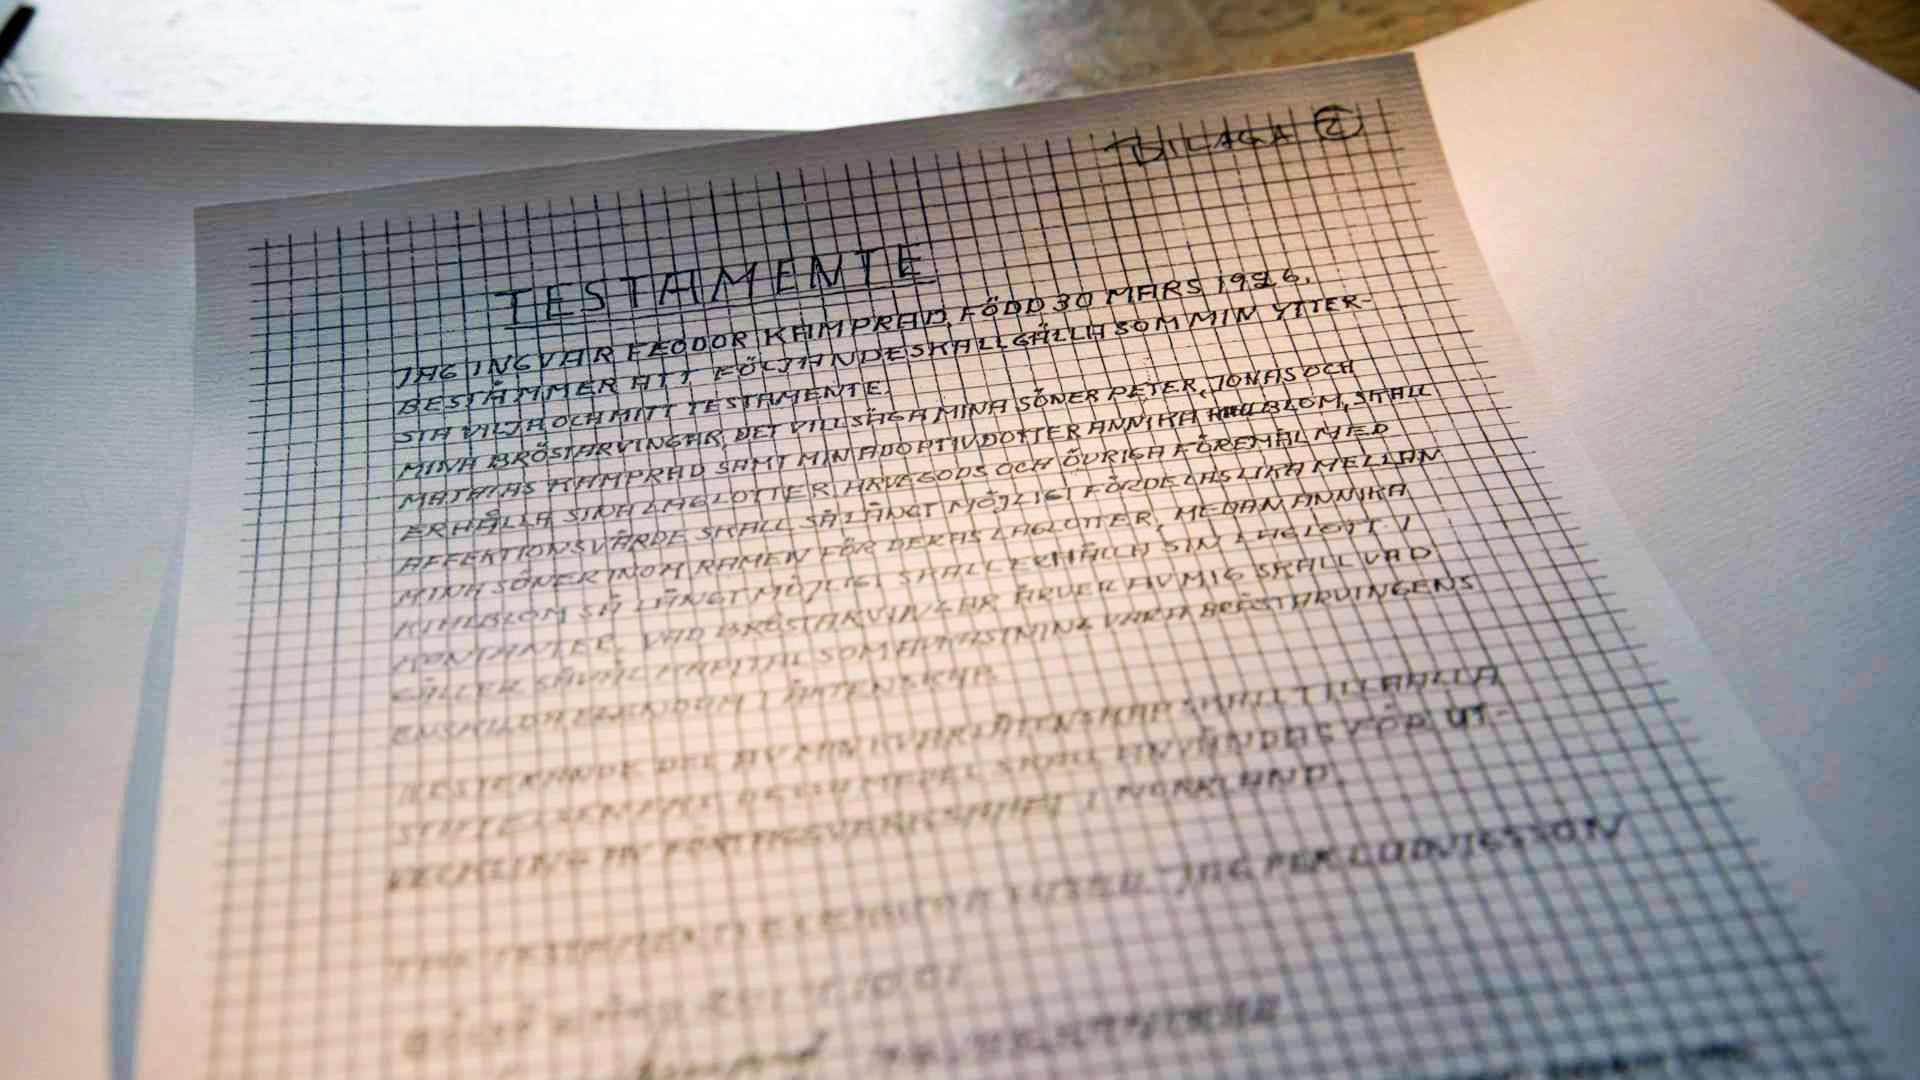 BILAGA 2
TESTAMENTE
JAG INGVAR FEODOR KAMPRAD, FÖDD 30 MARS 1926,
BESTÄMMER ATT FÖLJANDE SKALL GÄLLA SOM MIN YTTER-
STA VILJA OCH MITT TESTAMENTE.
MINA BRÖSTARVINGAR, DET VILL SÄGA MINA SÖNER PETER, JONAS OCH
MATHIAS KAMPRAD SAMT MIN ADOPTIVDOTTER ANNIKA KIHLBLOM, SKALL
ERHÅLLA SINA LAGLOTTER. ARVEGODS OCH ÖVRIGA FÖREMÅL MED
AFFEKTIONSVÄRDE SKALL SÅ LÅNGT MÖJLIGT FÖRDELAS LIKA MELLAN
MINA SÖNER INOM RAMEN FÖR DERAS LAGLOTTER, MEDAN ANNIKA
KIHLBLOM SÅ LÅNGT MÖJLIGT SKALL ERHÅLLA SIN LAGLOTT I
KONTANTER. VAD BRÖSTARVINGAR ÄRVER AV MIG SKALL VAD
GÄLLER SÅVÄL KAPITAL SOM AVKASTNING VARA BRÖSTARVINGENS
ENSKILDA EGENDOM I ÄKTENSKAP.
RESTERANDE DEL AV MIN KVARLÅTENSKAP SKALL TILLFALLA
STIFTELSEN DESSA MEDEL SKALL ANVÄNDAS FÖR UT-
VECKLING AV FÖRETAGSVERKSAMHET I NORRLAND.
JAG PER LUDVIGSSON